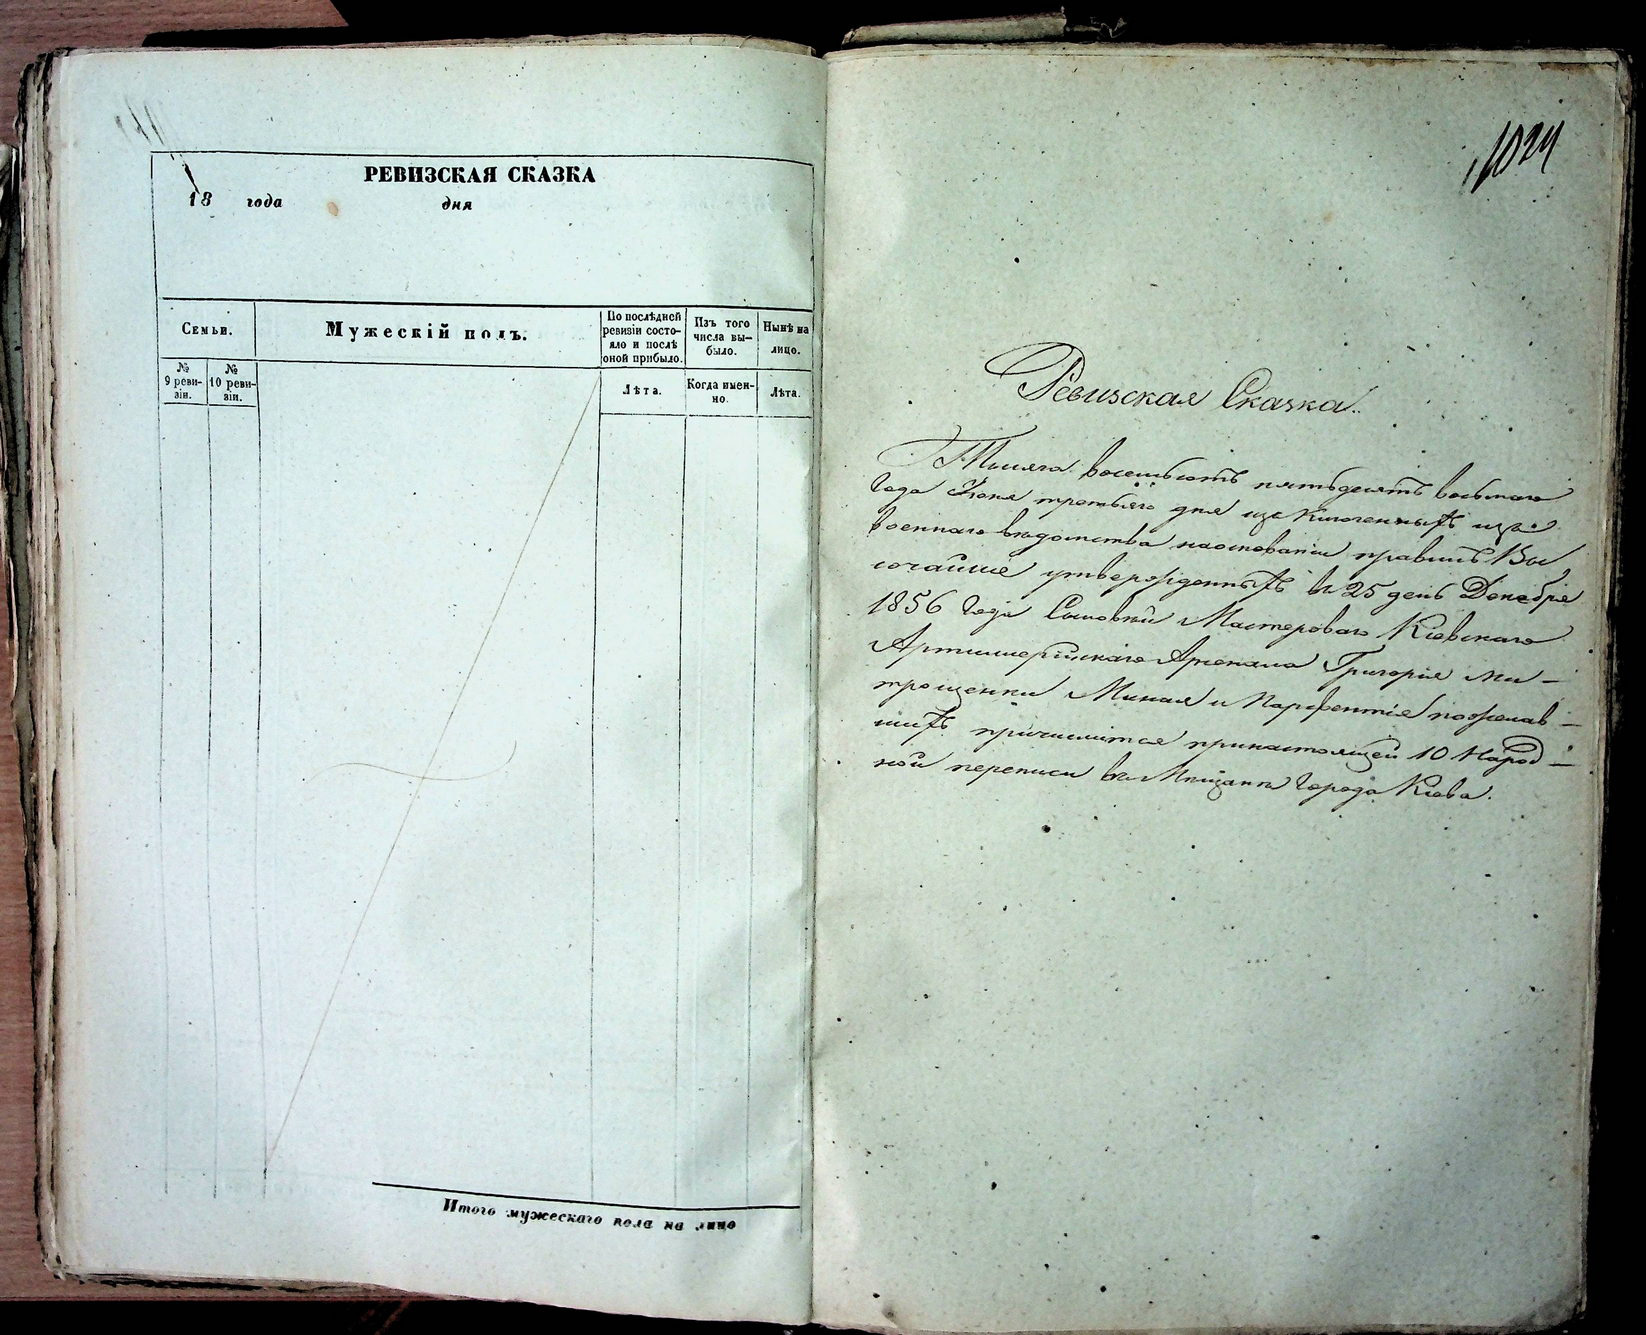 РЕВИЗСКАЯ СКАЗКА
18 года дня
Семьи.
№ 9 реви-
зіи.
№ 10 реви-
зіи.
Мужескій полъ.
По послѣдней
ревизіи состо-
яло и послѣ
оной прибыло.
Лѣта.
Изъ того
числа вы-
было.
Когда имен-
но.
Нынѣ на
лицо.
Лѣта.
Итого мужескаго пола на лицо
1024
Ревизская Сказка.
Тысяча восемьсотъ пятьдесятъ восьмаго
года Іюня третьяго дня изключенныхъ изъ
военнаго вѣдомства наосновании правилъ Вы
сочайше утвержденныхъ въ 25 день Декабря
1856 года Сыновей Мастероваго Кіевскаго
Артиллерійскаго Арсенала Григорія Ми-
трощенки Миная и Парфентія пожелав-
шихъ причислится принастоящей 10 Народ-
ной переписи въ Мѣщане города Кіева.